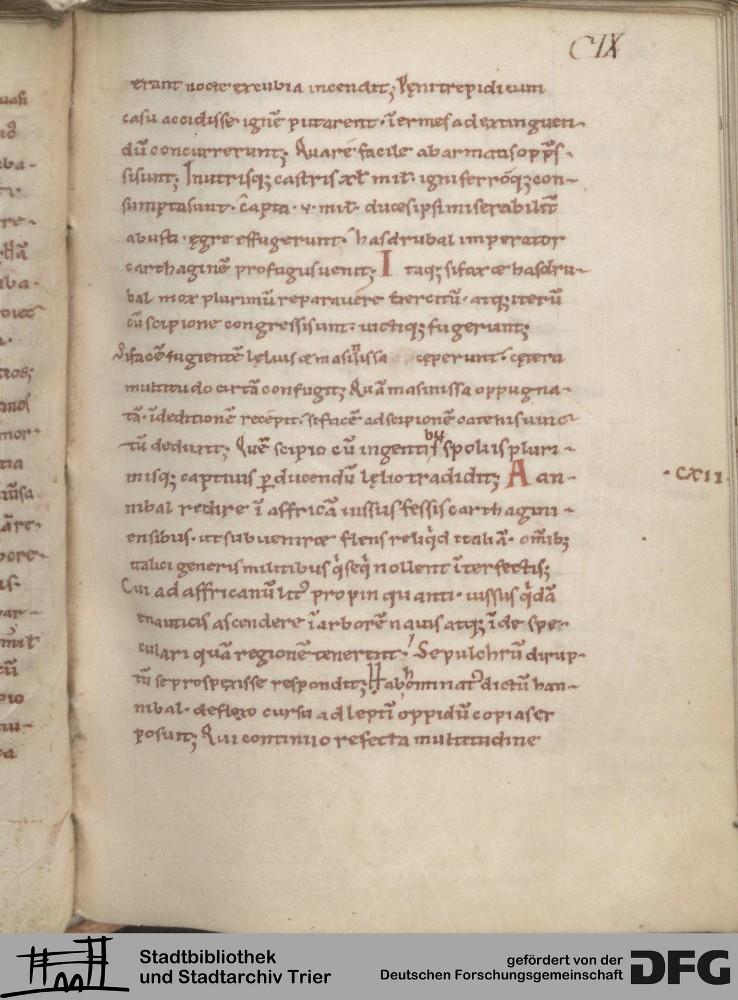 CIX
erant nocte excubia incendit; Pęni trepidi cum
casu accidisse ignē putarent · īermes ad extinguen-
dū concurrerunt; Quare facile ab armatis opp̄s-
si sunt; In utrisq; castris xl mil · igni ferróq; con-
sumpta sunt · Capta · v · mil · duces ipsi miserabilit̄
abusti · ęgre effugerunt · hasdrubal imperator
carthaginē profugus uenit; Itaq; sifax & hasdru-
bal mox plurimū reparauere exercitū · atq; iterū
cū scipione congressi sunt · uictiq; fugerunt;
sifacē fugientē lęlius & masinissa cęperunt · cętera
multitudo cirtā confugit; Quā masinissa oppugna-
tā · ī deditionē recepit · sifacē ad scipionē catenis uinc-
tū deduxit; Quē scipio cū ingentibus spoliis pluri-
misq; captiuis p̱ducendū lęlio tradidit; Aan-
nibal redire ī affricā iussus fessis carthagini-
ensibus · ut subueniret flens reliqd italiā · om̄ib;
italici generis militibus q seq nollent īterfectis;
Cui ad affricanū lit᾽ propinquanti · iussus qdā
e nauticis ascendere ī arborē nauis atq; īde spe-
culari quā regionē tenerent · Sepulchrū dirup-
tū se prospexisse respondit; Habhominat᾽ dictū han-
nibal · deflexo cursu ad leptī oppidū copias ex-
posuit; Qui continuo refecta multitudine
· CXII ·
Stadtbibliothek
und Stadtarchiv Trier
gefördert von der
Deutschen Forschungsgemeinschaft
DFG